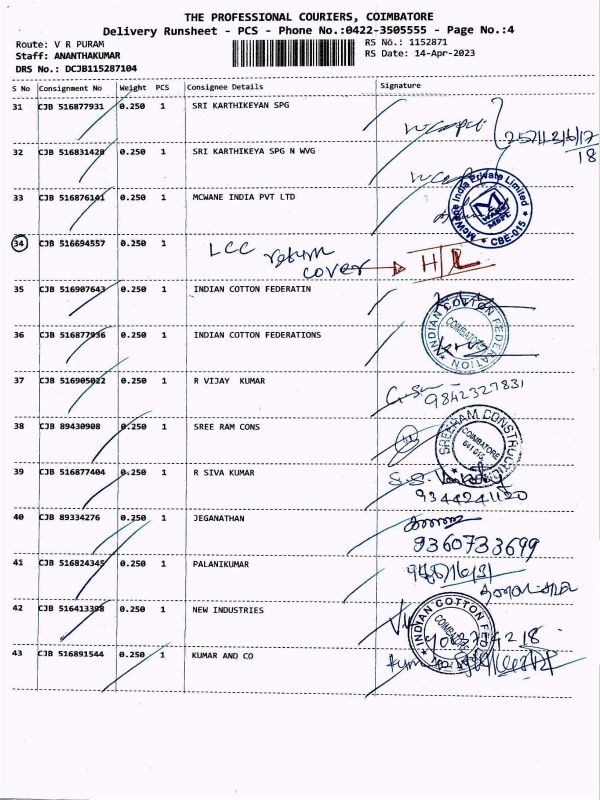 THE PROFESSIONAL COURIERS, COIMBATORE
Delivery Runsheet - PCS - Phone No.:0422-3505555 - Page No.:4
Route: V R PURAM
RS No.: 1152871
Staff: ANANTHAKUMAR
RS Date: 14-Apr-2023
DRS No.: DCJB115287104
S No Consignment No Weight PCS Consignee Details Signature
31 CJB 516877931 0.250 1 SRI KARTHIKEYAN SPG
32 CJB 516831428 0.250 1 SRI KARTHIKEYA SPG N WVG
18
33 CJB 516876141 0.250 1 MCWANE INDIA PVT LTD
McWane India Private Limited
CBE-015
34 CJB 516694557 0.250 1 LCC return
cover H/L
35 CJB 516907643 0.250 1 INDIAN COTTON FEDERATIN
36 CJB 516877936 0.250 1 INDIAN COTTON FEDERATIONS
INDIAN COTTON FEDERATION
COIMBATORE
37 CJB 516905022 0.250 1 R VIJAY KUMAR
9842327831
38 CJB 89430908 0.250 1 SREE RAM CONS
SREERAM CONSTRUCTION
COIMBATORE
641 015
39 CJB 516877404 0.250 1 R SIVA KUMAR
9344241120
40 CJB 89334276 0.250 1 JEGANATHAN
9360733699
41 CJB 516824345 0.250 1 PALANIKUMAR
42 CJB 516413398 0.250 1 NEW INDUSTRIES
INDIAN COTTON FED
COIMBATORE
43 CJB 516891544 0.250 1 KUMAR AND CO